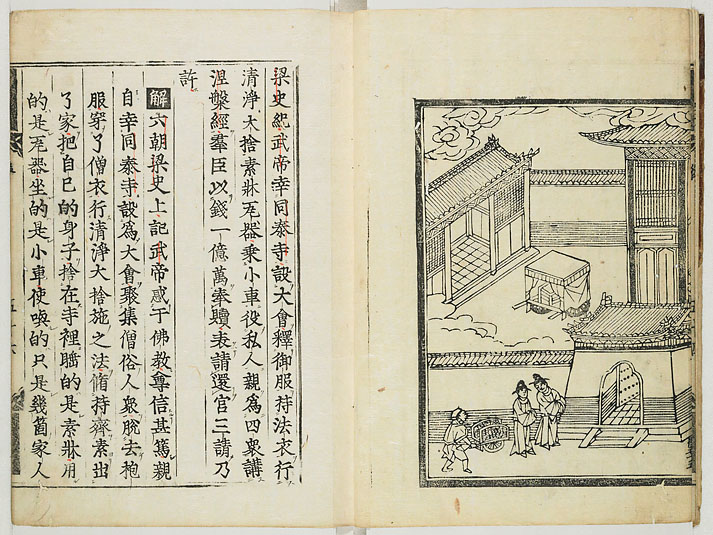 梁史紀武帝幸同泰寺設大會釋御服持法衣行
清淨大捨素牀瓦器乗小車役私人親爲四衆講
涅槃經羣臣以錢一億萬奉贖表請還宮三請乃
許
解六朝梁史上記武帝惑于佛教尊信甚篤親
自幸同泰寺設爲大會聚集僧俗人衆脫去袍
服穿了僧衣行清淨大捨施之法脩持齋素出
了家把自已的身子捨在寺裡睡的是素牀用
的是瓦器坐的是小車使喚的只是幾箇家人